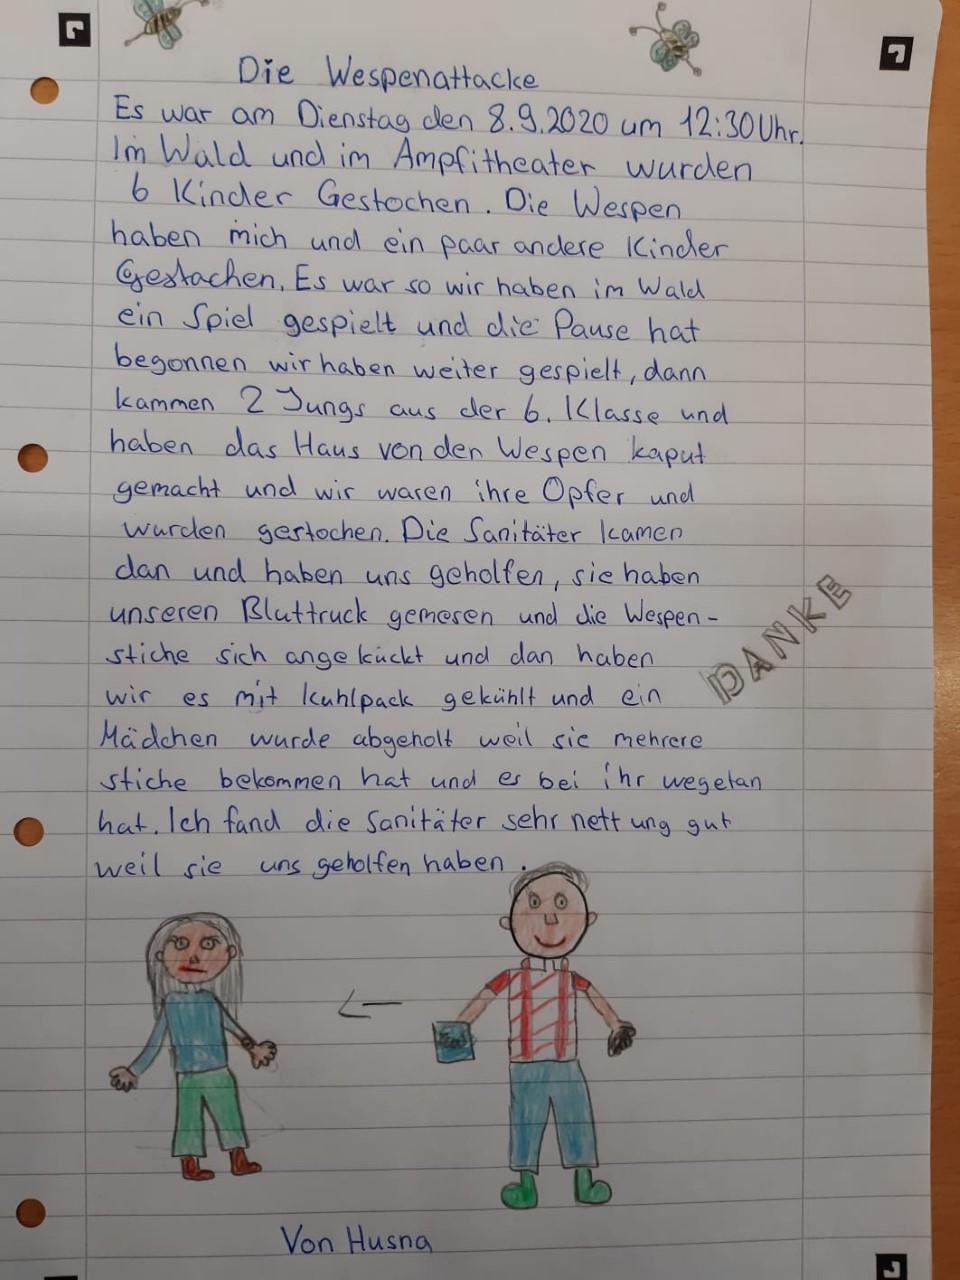 Die Wespenattacke
Es war am Dienstag den 8.9.2020 um 12:30 Uhr.
Im Wald und im Ampfitheater wurden
6 Kinder Gestochen. Die Wespen
haben mich und ein paar andere Kinder
Gestachen. Es war so wir haben im Wald
ein Spiel gespielt und die Pause hat
begonnen wir haben weiter gespielt, dann
kammen 2 Jungs aus der 6. Klasse und
haben das Haus von den Wespen kaput
gemacht und wir waren ihre Opfer und
wurden gestochen. Die Sanitäter kamen
dan und haben uns geholfen, sie haben
unseren Bluttruck gemesen und die Wespen-
stiche sich angekückt und dan haben
wir es mit Kuhlpack gekühlt und ein
Mädchen wurde abgeholt weil sie mehrere
stiche bekommen hat und es bei ihr wegetan
hat. Ich fand die Sanitäter sehr nett ung gut
weil sie uns geholfen haben.
DANKE
Von Husna